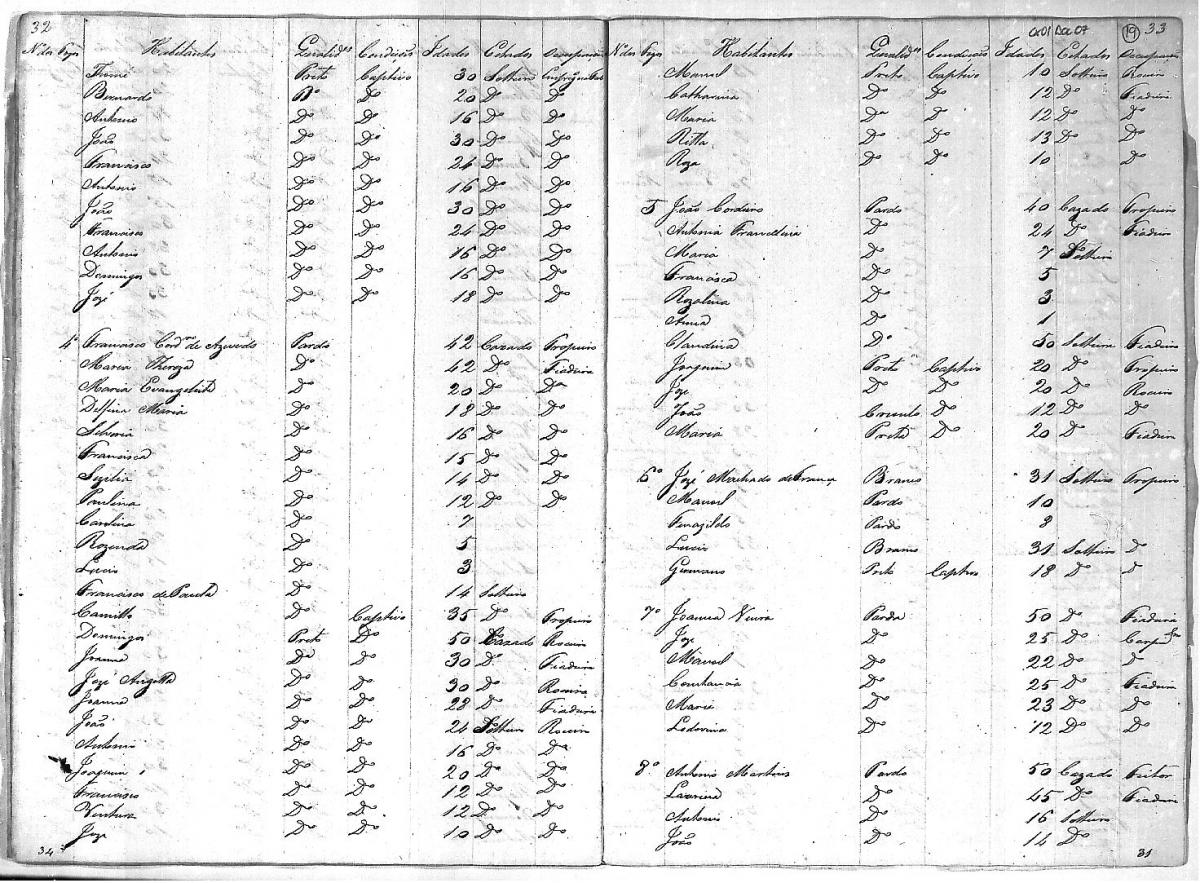 32
Nº dos Fogos Habitantes Qualides Condição Idades Estados Occupação
Preto Captivo 30 Solteiro
Bernardo Dº Dº 20 Dº Dº
Antonio Dº Dº 16 Dº Dº
João Dº Dº 30 Dº Dº
Francisco Dº Dº 24 Dº Dº
Antonio Dº Dº 16 Dº Dº
João Dº Dº 30 Dº Dº
Francisco Dº Dº 24 Dº Dº
Antonio Dº Dº 16 Dº Dº
Domingos Dº Dº 16 Dº Dº
José Dº Dº 18 Dº Dº
4º Francisco Cordro de Azevedo Pardo 42 Cazado Tropeiro
Maria Thereza Dº 42 Dº Fiadeira
Maria Evangelista Dº 20 Dº Dª
Delfina Maria Dº 18 Dº Dº
Silveria Dº 16 Dº Dº
Francisca Dº 15 Dº Dº
Sezilia Dº 14 Dº Dº
Paulina Dº 12 Dº Dº
Carolina Dº 7
Rozenda Dº 5
Lucio Dº 3
Francisco de Paula Dº 14 Solteiro
Camillo Dº Captivo 35 Dº Tropeiro
Domingos Preto Dº 50 Cazado Roceiro
Joanna Dª Dº 30 Dº Fiadeira
José Angolla Dº Dº 30 Dº Roceiro
Joanna Dº Dº 28 Dº Fiadeira
João Dº Dº 24 Solteiro Roceiro
Antonio Dº Dº 16 Dº Dº
Joaquim Dº Dº 20 Dº Dº
Francisco Dº Dº 12 Dº Dº
Ventura Dº Dº 12 Dº Dº
José Dº Dº 10 Dº Dº
34
19 33
Nº dos Fogos Habitantes Qualides Condição Idades Estados Occupação
Manoel Preto Captivo 10 Solteiro Roceiro
Catharina Dº Dº 12 Dº Fiadeira
Maria Dª Dº 12 Dº Dº
Ritta Dº Dº 13 Dº Dº
Roza Dº Dº 10 Dº
5 João Cordeiro Pardo 40 Cazado Tropeiro
Antonia Francellina Dº 24 Dº Fiadeira
Maria Dº 7 Solteira
Francisca Dº 5
Rozalina Dº 3
Anna Dº 1
Claudina Dº 50 Solteira Fiadeira
Joaquim Preto Captivo 20 Dº Tropeiro
José Dº Dº 20 Dº Roceiro
João Creoulo Dº 12 Dº Dº
Maria Preta Dº 20 Dº Fiadeira
6º José Machado de França Branco 31 Solteiro Tropeiro
Manoel Pardo 10
Pardo 8
Lucio Branco 31 Solteiro D
Germano Preto Captivo 18 Dº D
7º Joanna Vieira Parda 50 Dº Fiadeira
José Dº 25 Dº
Manoel Dº 22 Dº D
Constancia Dº 25 Dº Fiadeira
Maria Dº 23 Dº Dº
Lodovina Dº 12 Dº Dº
8º Antonio Martins Pardo 50 Cazado Feitor
Dº 45 Dº Fiadeira
Antonio Dº 16 Solteiro
João Dº 14 Dº
31